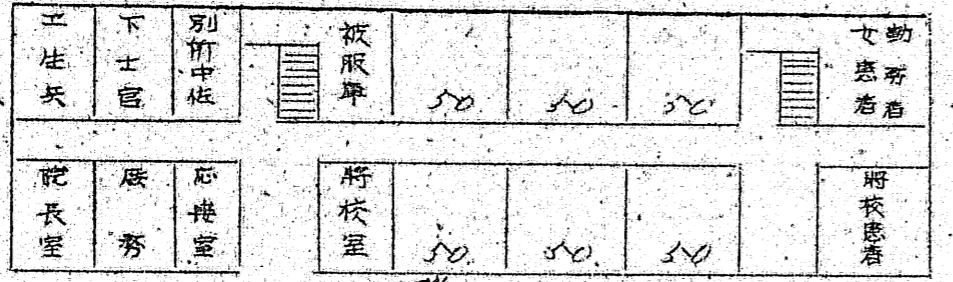 卫生兵
下士官
別府中佐
被服庫
50
50
50
勤務者
女患者
院長室
庶務
応接室
將校室
50
50
50
將校患者